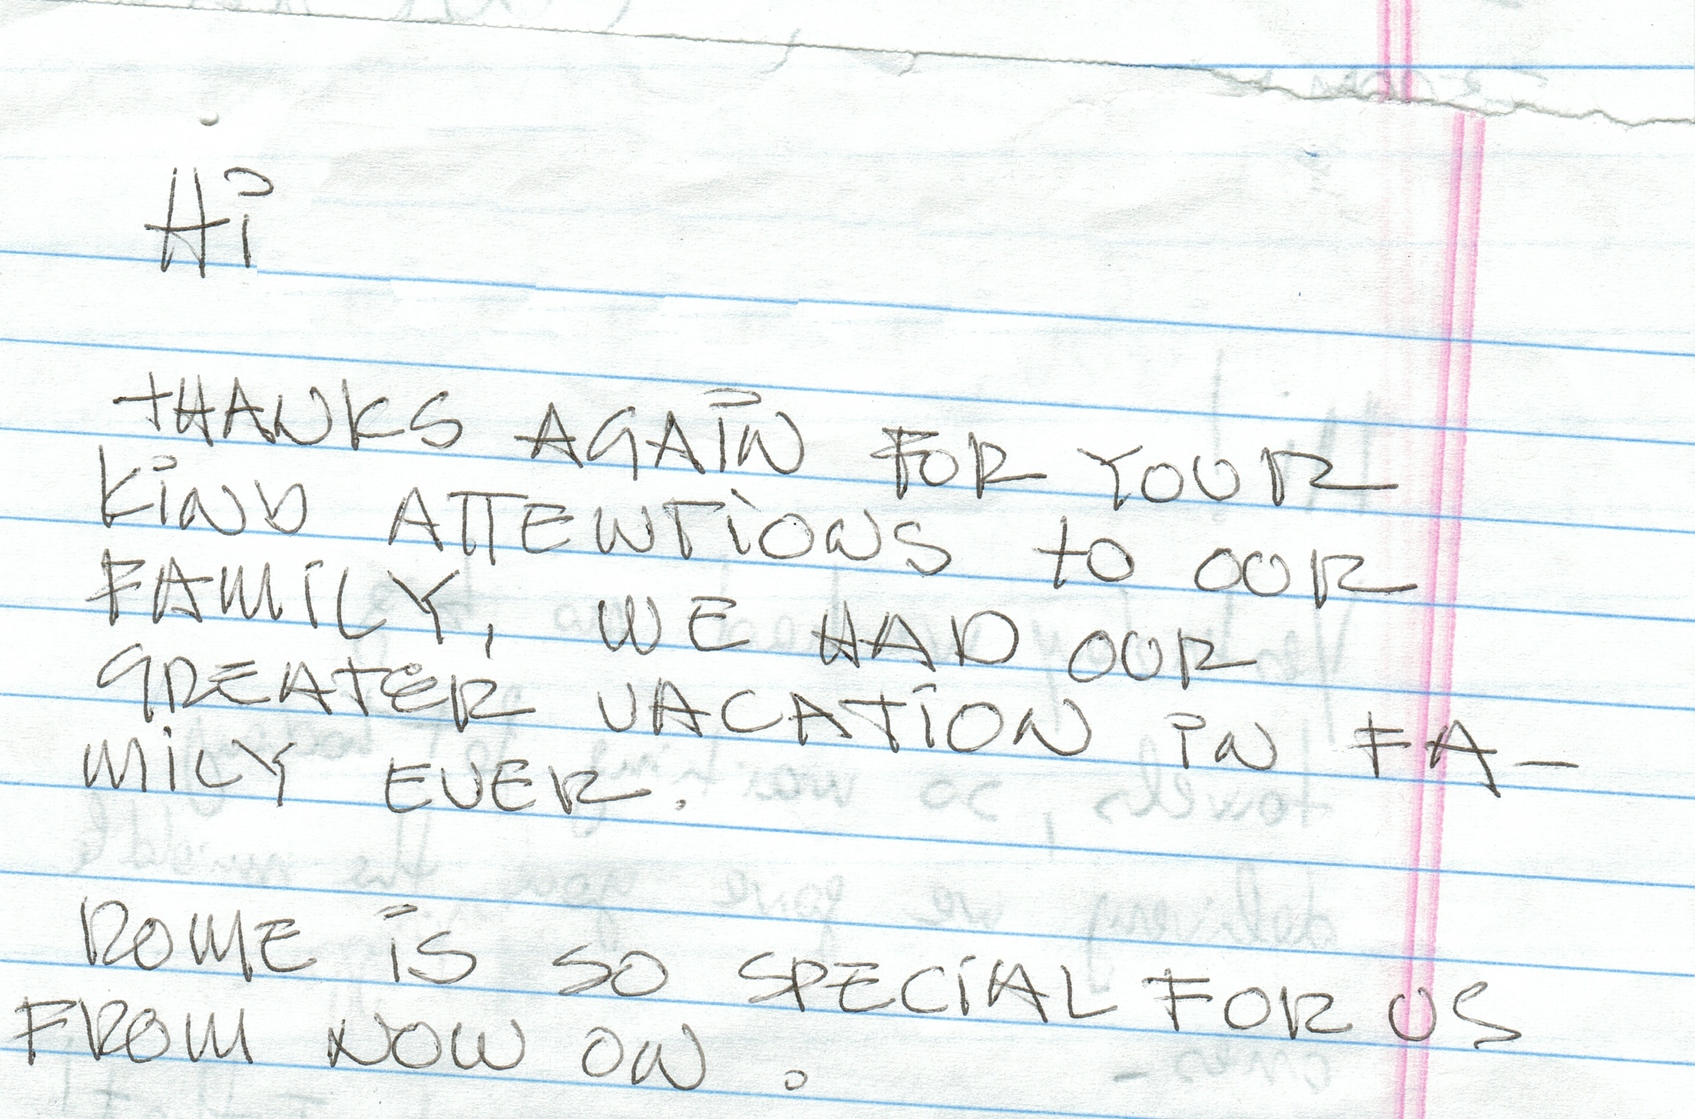 Hi
THANKS AGAIN FOR YOUR
KIND ATTENTIONS TO OUR
FAMILY, WE HAD OUR
GREATER VACATION IN FA-
MILY EVER.
ROME IS SO SPECIAL FOR US
FROM NOW ON.